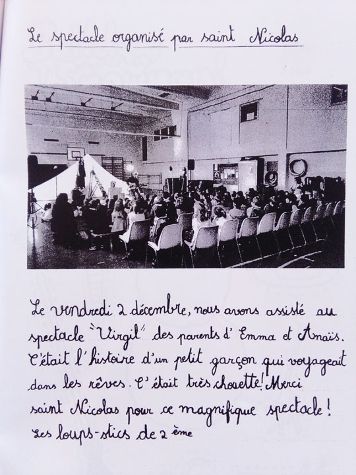 Le spectacle organisé par saint Nicolas
Le vendredi 2 décembre, nous avons assisté au
spectacle "Virgil" des parents d'Emma et Anaïs.
C'était l'histoire d'un petit garçon qui voyageait
dans les rêves. C'était très chouette! Merci
saint Nicolas pour ce magnifique spectacle!
Les loups-stics de 2 ème